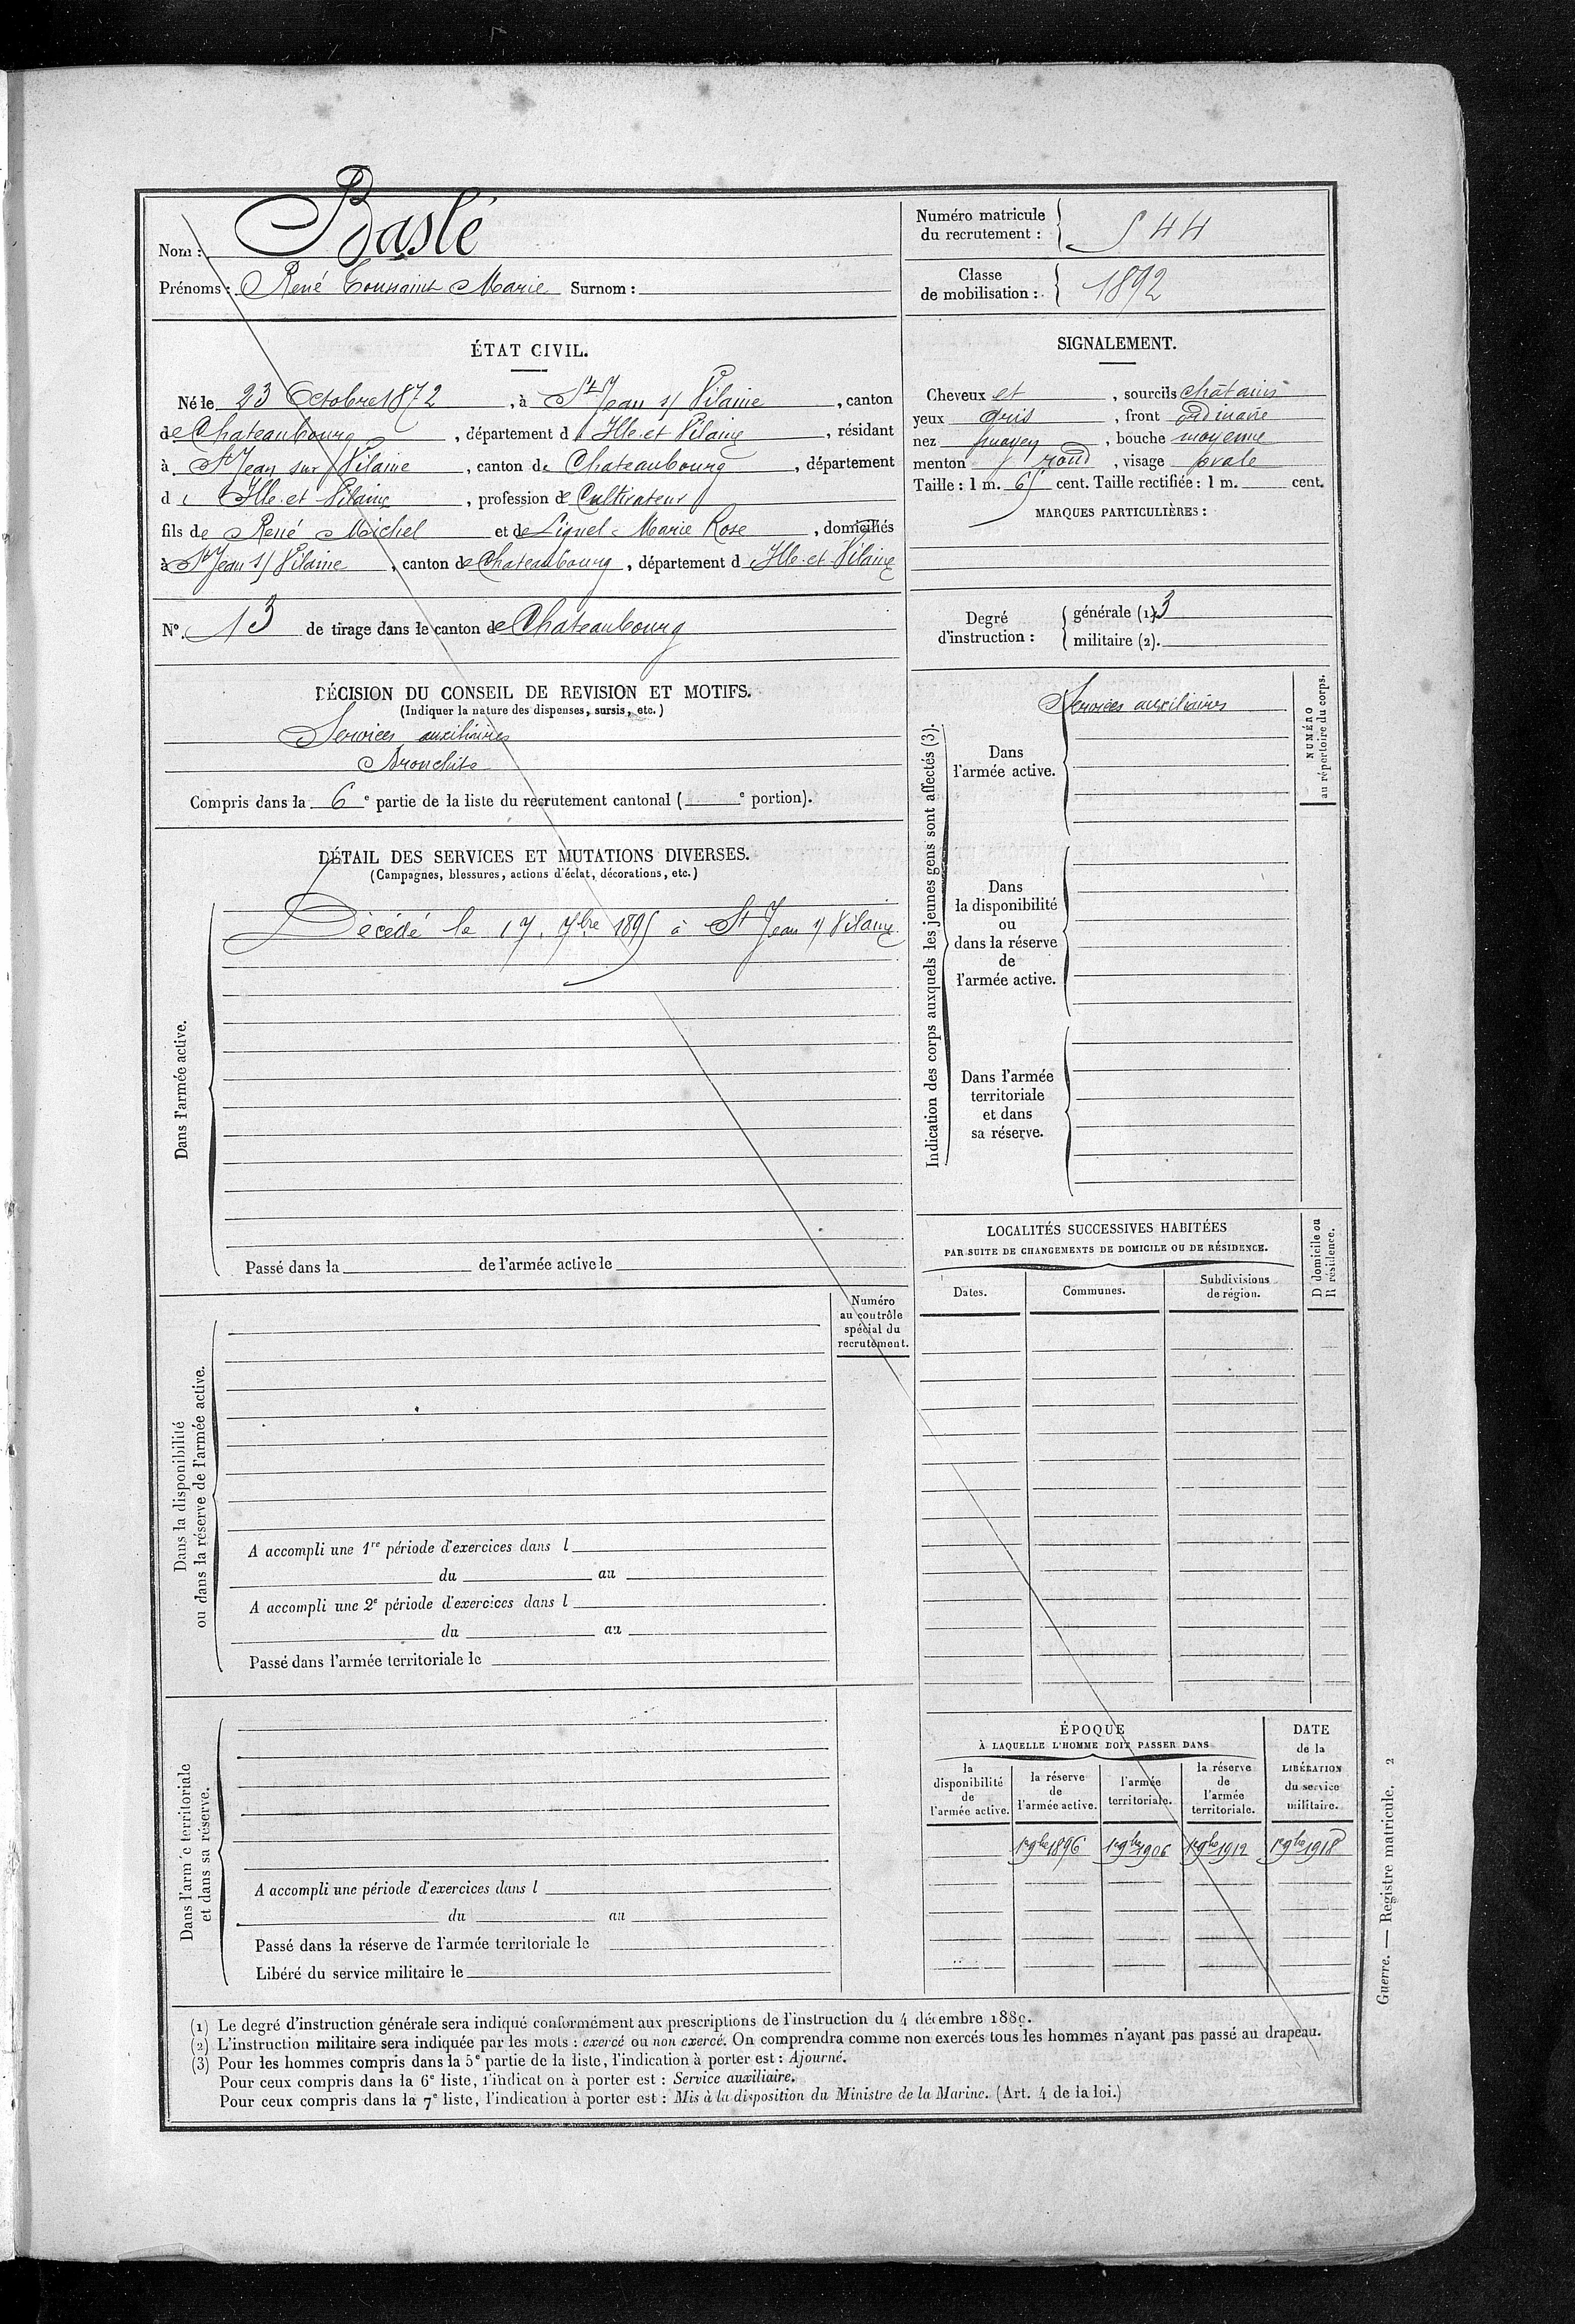 Nom : Baslé
Prénoms : René Toussaint Marie Surnom :
Numéro matricule du recrutement : 544
Classe de mobilisation : 1892
ÉTAT CIVIL.
Né le 23 Octobre 1872, à St Jean s/ Vilaine, canton
de Chateaubourg, département d'Ille et Vilaine, résidant
à St Jean sur Vilaine, canton de Chateaubourg, département
d'Ille et Vilaine, profession de Cultivateur
fils de René Michel et de Liquel Marie Rose, domiciliés
à St Jean s/ Vilaine, canton de Chateaubourg, département d Ille et Vilaine
N° 13 de tirage dans le canton de Chateaubourg
SIGNALEMENT.
Cheveux et, sourcils châtains
yeux gris, front ordinaire
nez moyen, bouche moyenne
menton rond, visage ovale
Taille : 1 m. 65 cent. Taille rectifiée : 1 m. cent.
MARQUES PARTICULIÈRES :
Degré d'instruction :
générale (1). 3
militaire (2).
DÉCISION DU CONSEIL DE REVISION ET MOTIFS.
(Indiquer la nature des dispenses, sursis, etc.)
Services auxiliaires
Bronchite
Compris dans la 6e partie de la liste du recrutement cantonal ( e portion).
DÉTAIL DES SERVICES ET MUTATIONS DIVERSES.
(Campagnes, blessures, actions d'éclat, décorations, etc.)
Dans l'armée active.
Décédé le 17 7bre 1895 à St Jean s/ Vilaine
Passé dans la de l'armée active le
Indication des corps auxquels les jeunes gens sont affectés (3).
Dans
l'armée active.
Services auxiliaires
NUMÉRO
au répertoire du corps.
Dans
la disponibilité
ou
dans la réserve
de
l'armée active.
Dans l'armée
territoriale
et dans
sa réserve.
LOCALITÉS SUCCESSIVES HABITÉES
PAR SUITE DE CHANGEMENTS DE DOMICILE OU DE RÉSIDENCE.
Dates.
Communes.
Subdivisions
de région.
D domicile ou
R résidence.
Numéro
au contrôle
spécial du
recrutement.
Dans la disponibilité
ou dans la réserve de l'armée active.
A accompli une 1re période d'exercices dans l
du au
A accompli une 2e période d'exercices dans l
du au
Passé dans l'armée territoriale le
Dans l'armée territoriale
et dans sa réserve.
A accompli une période d'exercices dans l
du au
Passé dans la réserve de l'armée territoriale le
Libéré du service militaire le
ÉPOQUE
À LAQUELLE L'HOMME DOIT PASSER DANS
la
disponibilité
de
l'armée active.
la réserve
de
l'armée active.
l'armée
territoriale.
la réserve
de
l'armée
territoriale.
DATE
de la
LIBÉRATION
du service
militaire.
1er 9bre 1896 1er 9bre 1906 1er 9bre 1912 1er 9bre 1918
(1) Le degré d'instruction générale sera indiqué conformément aux prescriptions de l'instruction du 4 décembre 1889.
(2) L'instruction militaire sera indiquée par les mots : exercé ou non exercé. On comprendra comme non exercés tous les hommes n'ayant pas passé au drapeau.
(3) Pour les hommes compris dans la 5e partie de la liste, l'indication à porter est : Ajourné.
Pour ceux compris dans la 6e liste, l'indication à porter est : Service auxiliaire.
Pour ceux compris dans la 7e liste, l'indication à porter est : Mis à la disposition du Ministre de la Marine. (Art. 4 de la loi.)
Guerre. — Registre matricule. 2